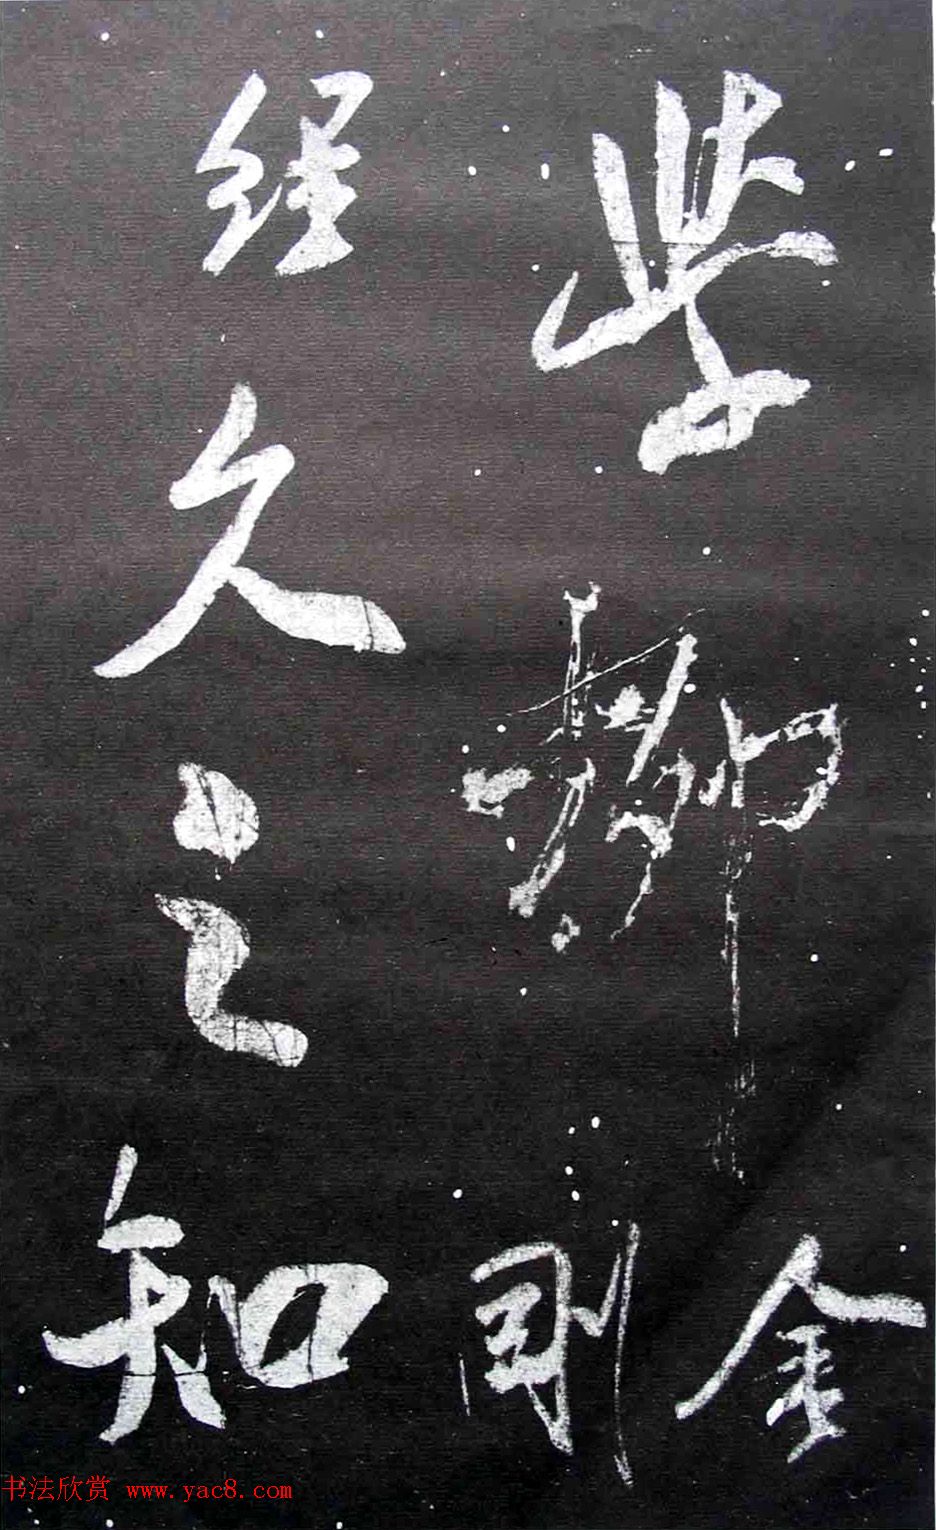 學柳金剛
經久之知
书法欣赏 www.yac8.com